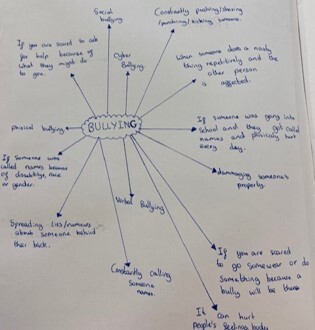 Social
bullying
Constantly pushing/shoving
/punching/kicking someone.
If you are scared to ask
for help because of
what they might do
to you.
Cyber
Bullying.
When someone does a nasty
thing repetitively and the
other person
is affected.
physical bullying
BULLYING
If someone was going into
school and they got called
names and physically hurt
every day.
If someone was
called names because
of disability, race
or gender.
damaging someone's
property.
Verbal Bullying
Spreading lies/rumours
about someone behind
their back.
Constantly calling
someone
names.
If you are scared
to go somewear or do
something because a
bully will be there
It can hurt
people's feelings